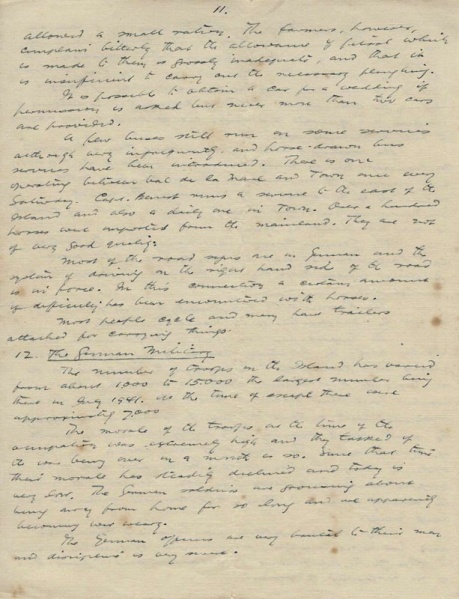 11.
allowed a small ration. The farmers, however,
complain bitterly that the allowance of petrol which
is made to them is grossly inadequate, and that it
is insufficient to carry out the necessary ploughing.
It is possible to obtain a car for a wedding if
permission is asked but never more than two cars
are provided.
A few buses still run on some services
although very infrequently and horse-drawn bus
services have been introduced. There is one
operating between Val de la Mare and Town once every
Saturday. Capt. Benest runs a service to the east of the
Island and also a daily one in Town. Over a hundred
horses were imported from the mainland. They are not
of very good quality.
Most of the road signs are in German and the
system of driving on the right hand side of the road
is in force. In this connection a certain amount
of difficulty has been encountered with horses.
Most people cycle and many have trailers
attached for carrying things.
12. The German Military
The number of troops in the Island has varied
from about 1000 to 15000 the largest number being
there in July 1941. At the time of escape there were
approximately 7,000
The morale of the troops at the time of the
occupation was extremely high and they talked of
it being over in a month or so. Since that time
their morale has steadily declined and today is
very low. The German soldiers are grousing about
being away from home for so long and are apparently
becoming war weary.
The German officers are very brutal to their men
and discipline is very severe.